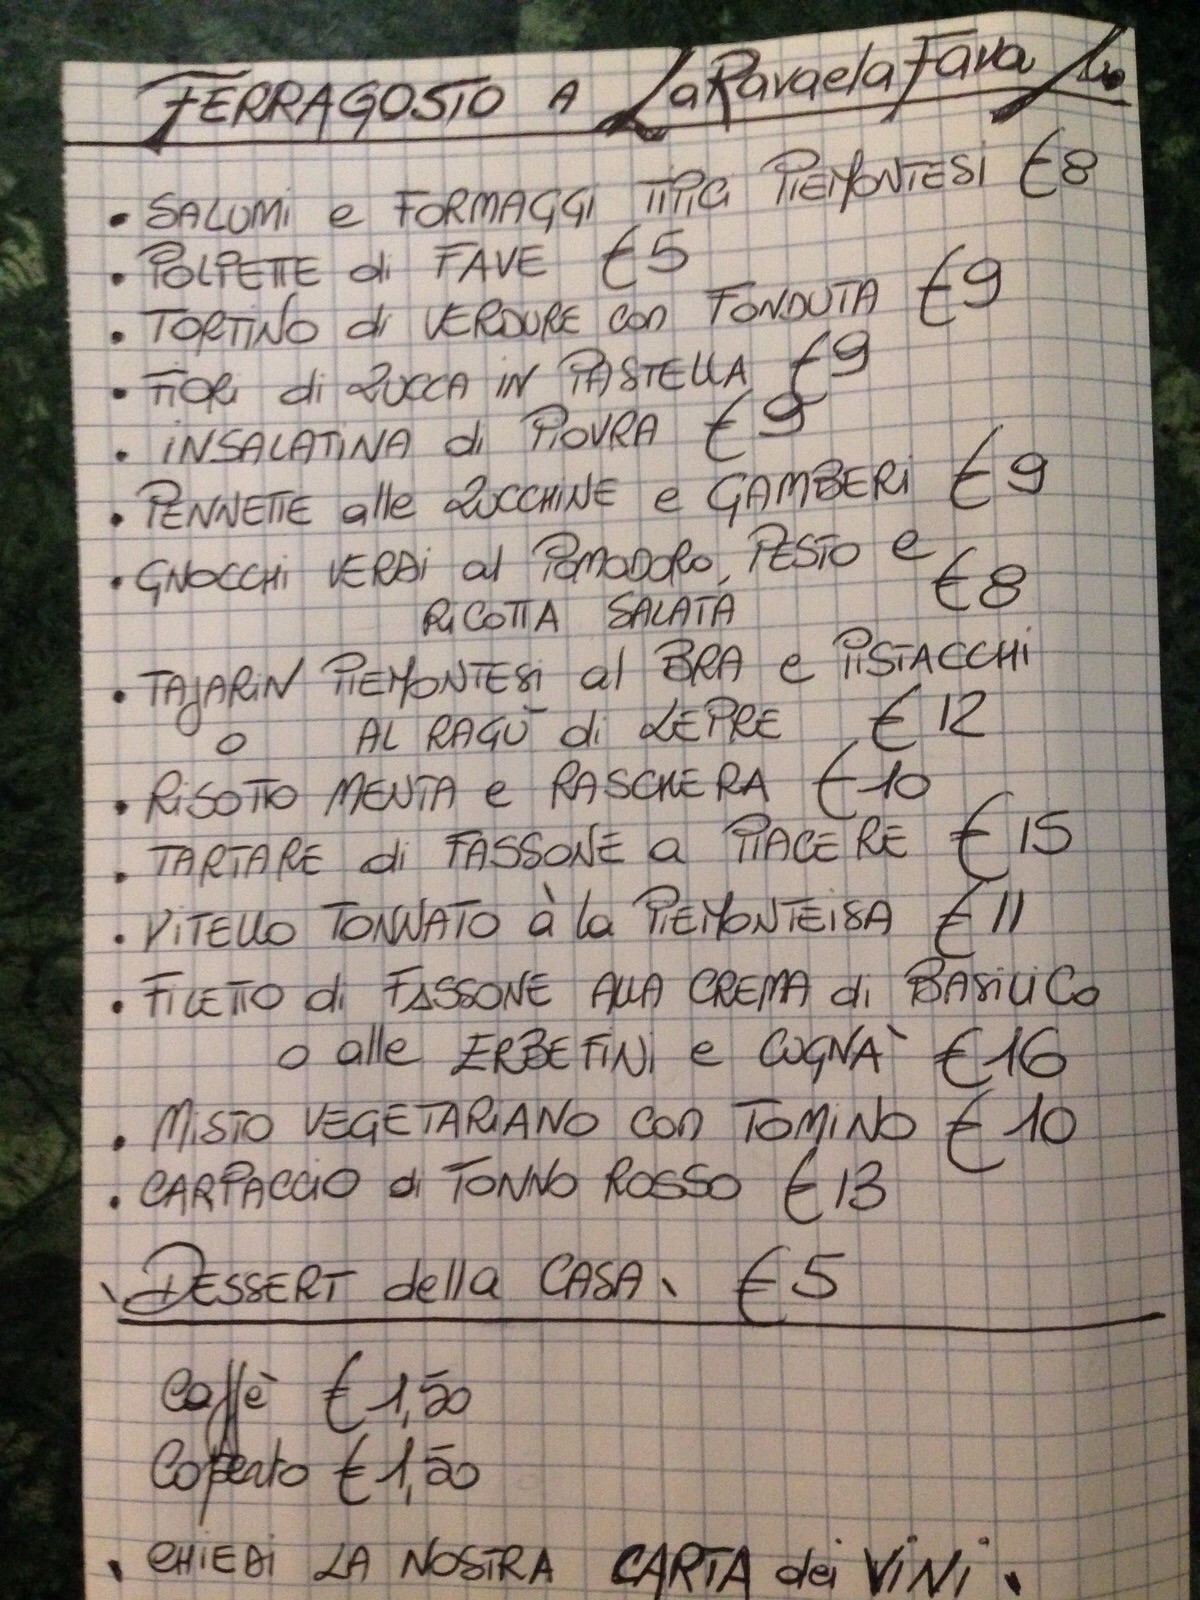 FERRAGOSTO A LaRavaelaFava
• SALUMI e FORMAGGI TIPICI PIEMONTESI €8
• POLPETTE di FAVE €5
• TORTINO di VERDURE con FONDUTA €9
• FIORI di ZUCCA IN PASTELLA €9
• INSALATINA di PIOVRA €9
• PENNETTE alle ZUCCHINE e GAMBERI €9
• GNOCCHI VERDI al POMODORO, PESTO e
RICOTTA SALATA €8
• TAJARIN PIEMONTESI al BRA e PISTACCHI
o AL RAGÙ di LEPRE €12
• RISOTTO MENTA e RASCHERA €10
• TARTARE di FASSONE a PIACERE €15
• VITELLO TONNATO à la PIEMONTEISA €11
• FILETTO di FASSONE ALLA CREMA di BASILICO
o alle ERBE FINI e COGNÀ €16
• MISTO VEGETARIANO con TOMINO €10
• CARPACCIO di TONNO ROSSO €13
DESSERT della CASA €5
Caffè €1,50
Coperto €1,50
CHIEDI LA NOSTRA CARTA dei VINI